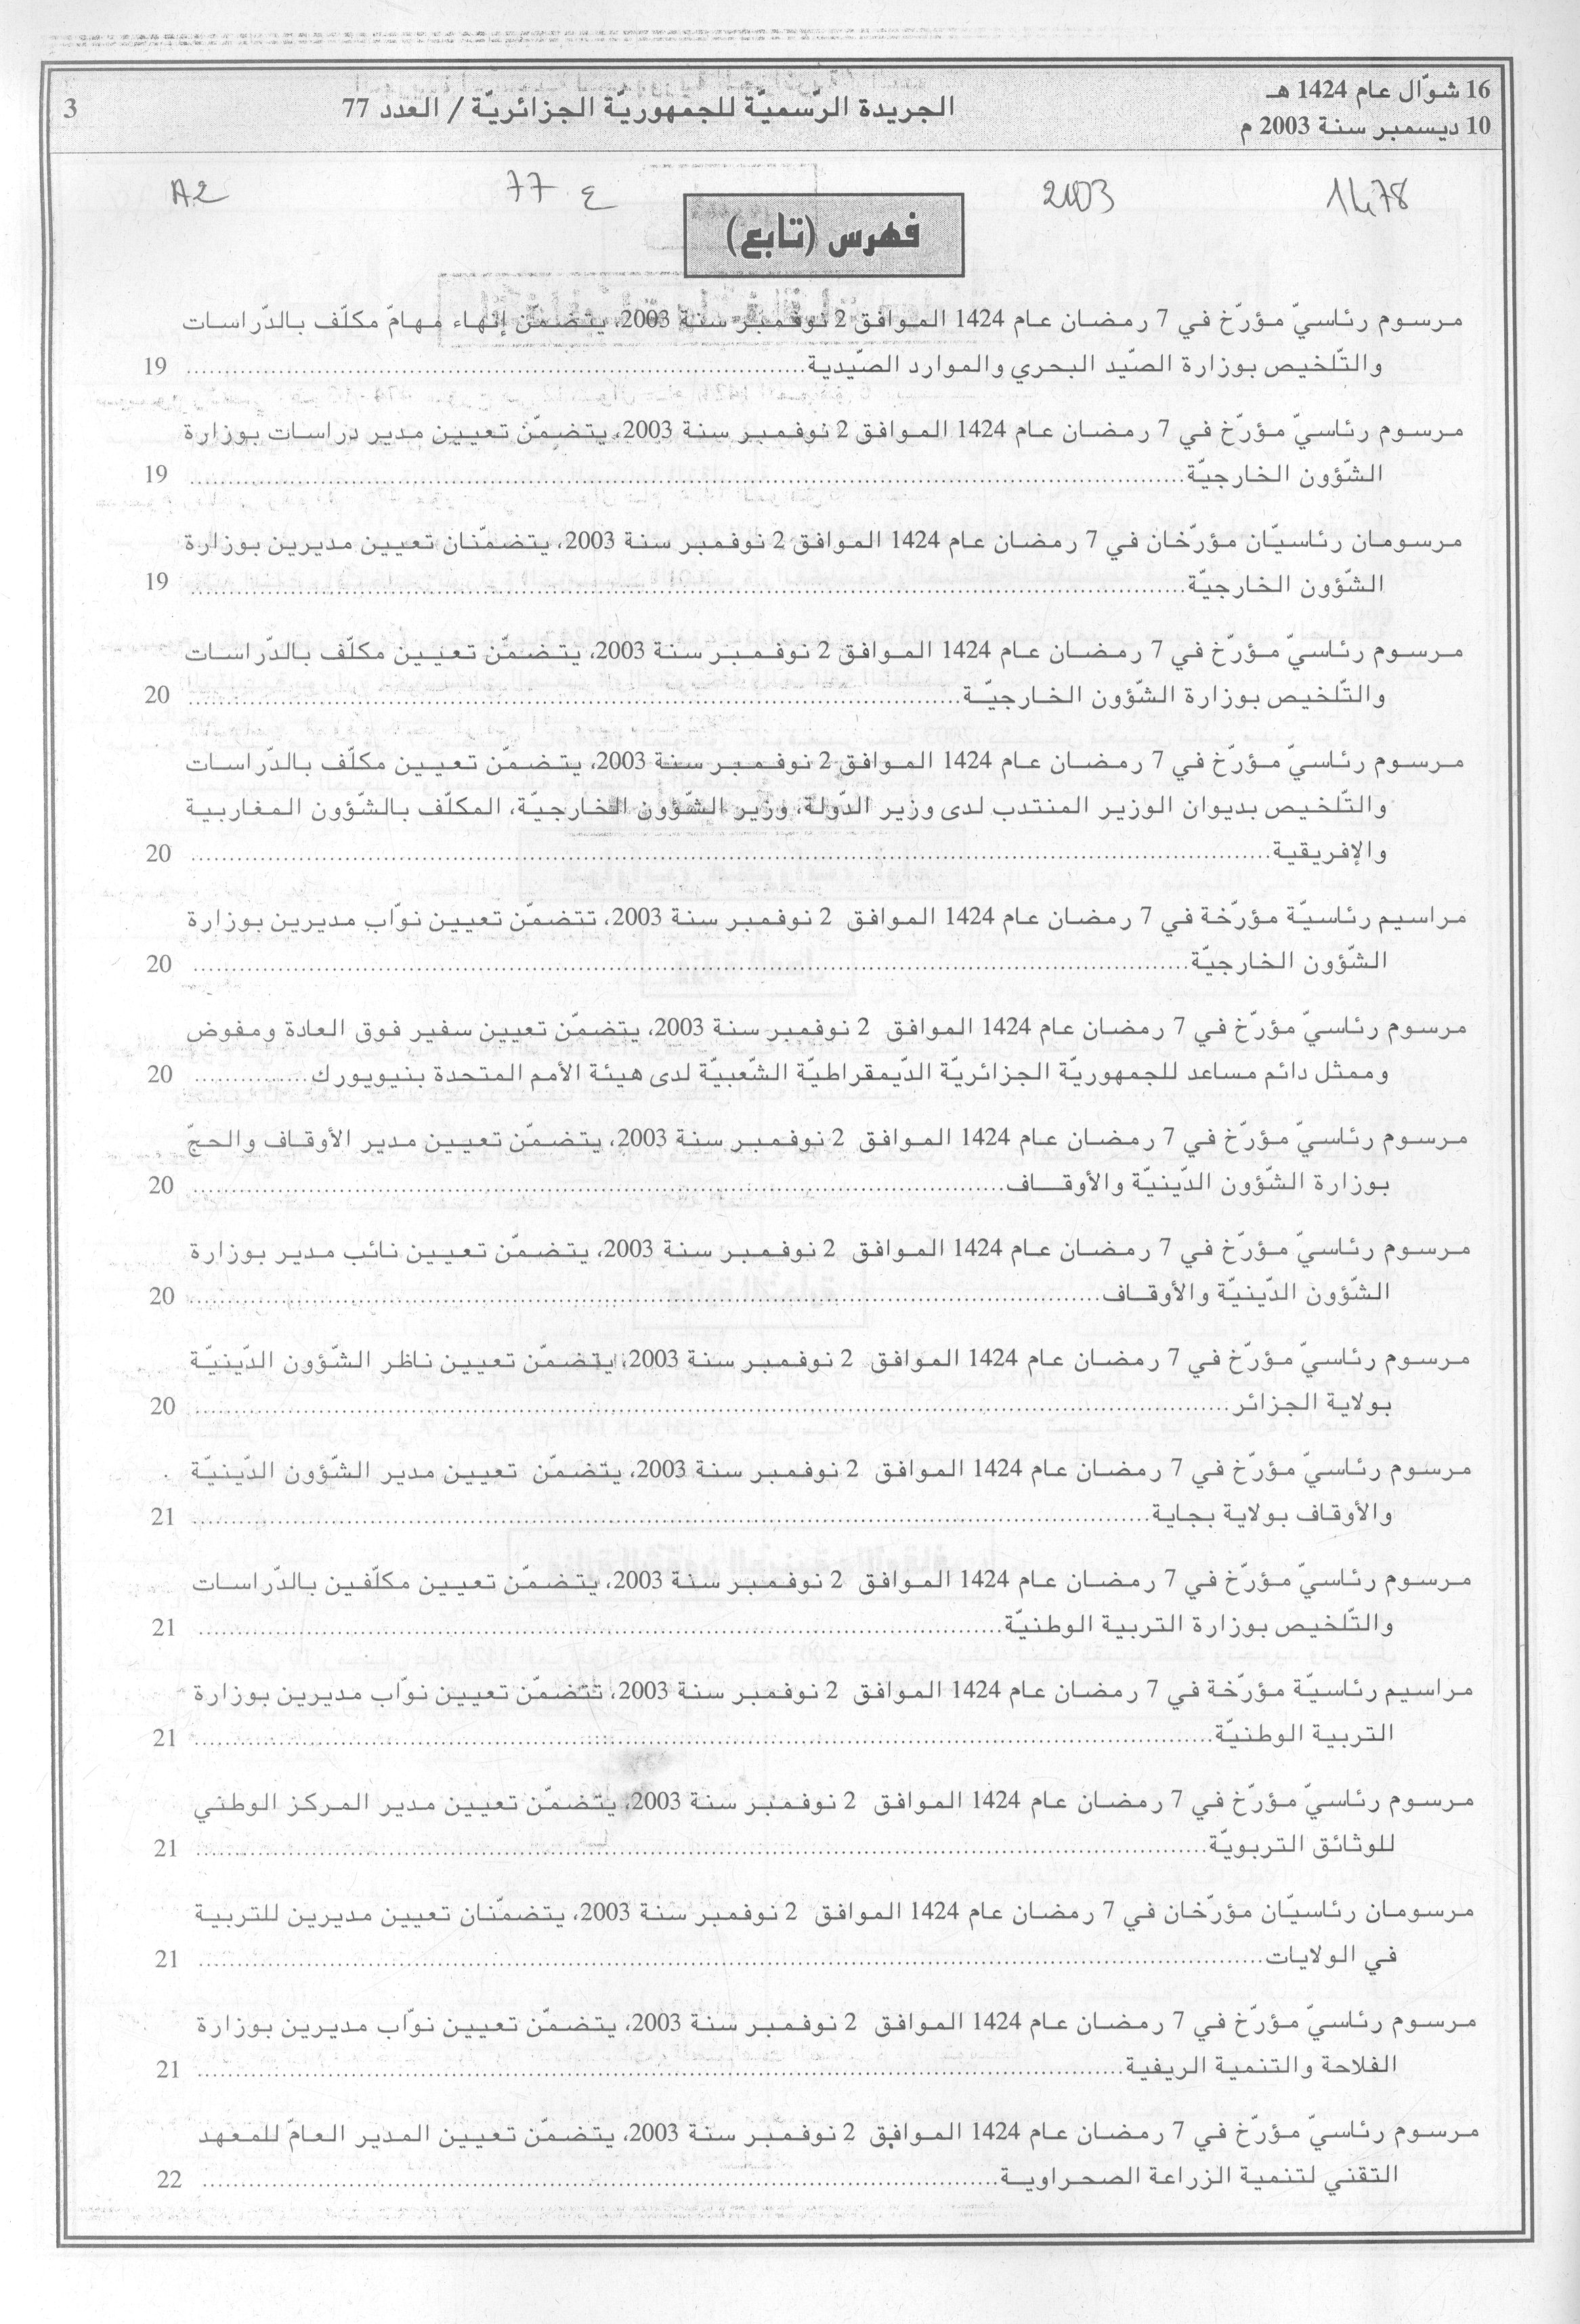 16 شوّال عام 1424 هـ
10 ديسمبر سنة 2003 م
الجريدة الرّسميّة للجمهوريّة الجزائريّة / العدد 77
3
1478
2003
ع 77
A2
فهرس (تابع)
مرسوم رئاسيّ مؤرّخ في 7 رمضان عام 1424 الموافق 2 نوفمبر سنة 2003، يتضمّن إنهاء مهامّ مكلّف بالدّراسات
والتّلخيص بوزارة الصّيد البحري والموارد الصّيدية.......... 19
مرسوم رئاسيّ مؤرّخ في 7 رمضان عام 1424 الموافق 2 نوفمبر سنة 2003، يتضمّن تعيين مدير دراسات بوزارة
الشّؤون الخارجيّة.......... 19
مرسومان رئاسيّان مؤرّخان في 7 رمضان عام 1424 الموافق 2 نوفمبر سنة 2003، يتضمّنان تعيين مديرين بوزارة
الشّؤون الخارجيّة.......... 19
مرسوم رئاسيّ مؤرّخ في 7 رمضان عام 1424 الموافق 2 نوفمبر سنة 2003، يتضمّن تعيين مكلّف بالدّراسات
والتّلخيص بوزارة الشّؤون الخارجيّة.......... 20
مرسوم رئاسيّ مؤرّخ في 7 رمضان عام 1424 الموافق 2 نوفمبر سنة 2003، يتضمّن تعيين مكلّف بالدّراسات
والتّلخيص بديوان الوزير المنتدب لدى وزير الدّولة، وزير الشّؤون الخارجيّة، المكلّف بالشّؤون المغاربية
والإفريقية.......... 20
مراسيم رئاسيّة مؤرّخة في 7 رمضان عام 1424 الموافق 2 نوفمبر سنة 2003، تتضمّن تعيين نوّاب مديرين بوزارة
الشّؤون الخارجيّة.......... 20
مرسوم رئاسيّ مؤرّخ في 7 رمضان عام 1424 الموافق 2 نوفمبر سنة 2003، يتضمّن تعيين سفير فوق العادة ومفوض
وممثل دائم مساعد للجمهوريّة الجزائريّة الدّيمقراطيّة الشّعبيّة لدى هيئة الأمم المتحدة بنيويورك.......... 20
مرسوم رئاسيّ مؤرّخ في 7 رمضان عام 1424 الموافق 2 نوفمبر سنة 2003، يتضمّن تعيين مدير الأوقاف والحجّ
بوزارة الشّؤون الدّينيّة والأوقـاف.......... 20
مرسوم رئاسيّ مؤرّخ في 7 رمضان عام 1424 الموافق 2 نوفمبر سنة 2003، يتضمّن تعيين نائب مدير بوزارة
الشّؤون الدّينيّة والأوقـاف.......... 20
مرسوم رئاسيّ مؤرّخ في 7 رمضان عام 1424 الموافق 2 نوفمبر سنة 2003، يتضمّن تعيين ناظر الشّؤون الدّينيّة
بولاية الجزائر.......... 20
مرسوم رئاسيّ مؤرّخ في 7 رمضان عام 1424 الموافق 2 نوفمبر سنة 2003، يتضمّن تعيين مدير الشّؤون الدّينيّة
والأوقاف بولاية بجاية.......... 21
مرسوم رئاسيّ مؤرّخ في 7 رمضان عام 1424 الموافق 2 نوفمبر سنة 2003، يتضمّن تعيين مكلّفين بالدّراسات
والتّلخيص بوزارة التربية الوطنيّة.......... 21
مراسيم رئاسيّة مؤرّخة في 7 رمضان عام 1424 الموافق 2 نوفمبر سنة 2003، تتضمّن تعيين نوّاب مديرين بوزارة
التربية الوطنيّة.......... 21
مرسوم رئاسيّ مؤرّخ في 7 رمضان عام 1424 الموافق 2 نوفمبر سنة 2003، يتضمّن تعيين مدير المركز الوطني
للوثائق التربويّة.......... 21
مرسومان رئاسيّان مؤرّخان في 7 رمضان عام 1424 الموافق 2 نوفمبر سنة 2003، يتضمّنان تعيين مديرين للتربية
في الولايات.......... 21
مرسوم رئاسيّ مؤرّخ في 7 رمضان عام 1424 الموافق 2 نوفمبر سنة 2003، يتضمّن تعيين نوّاب مديرين بوزارة
الفلاحة والتنمية الريفية.......... 21
مرسوم رئاسيّ مؤرّخ في 7 رمضان عام 1424 الموافق 2 نوفمبر سنة 2003، يتضمّن تعيين المدير العامّ للمعهد
التقني لتنمية الزراعة الصحراويـة.......... 22